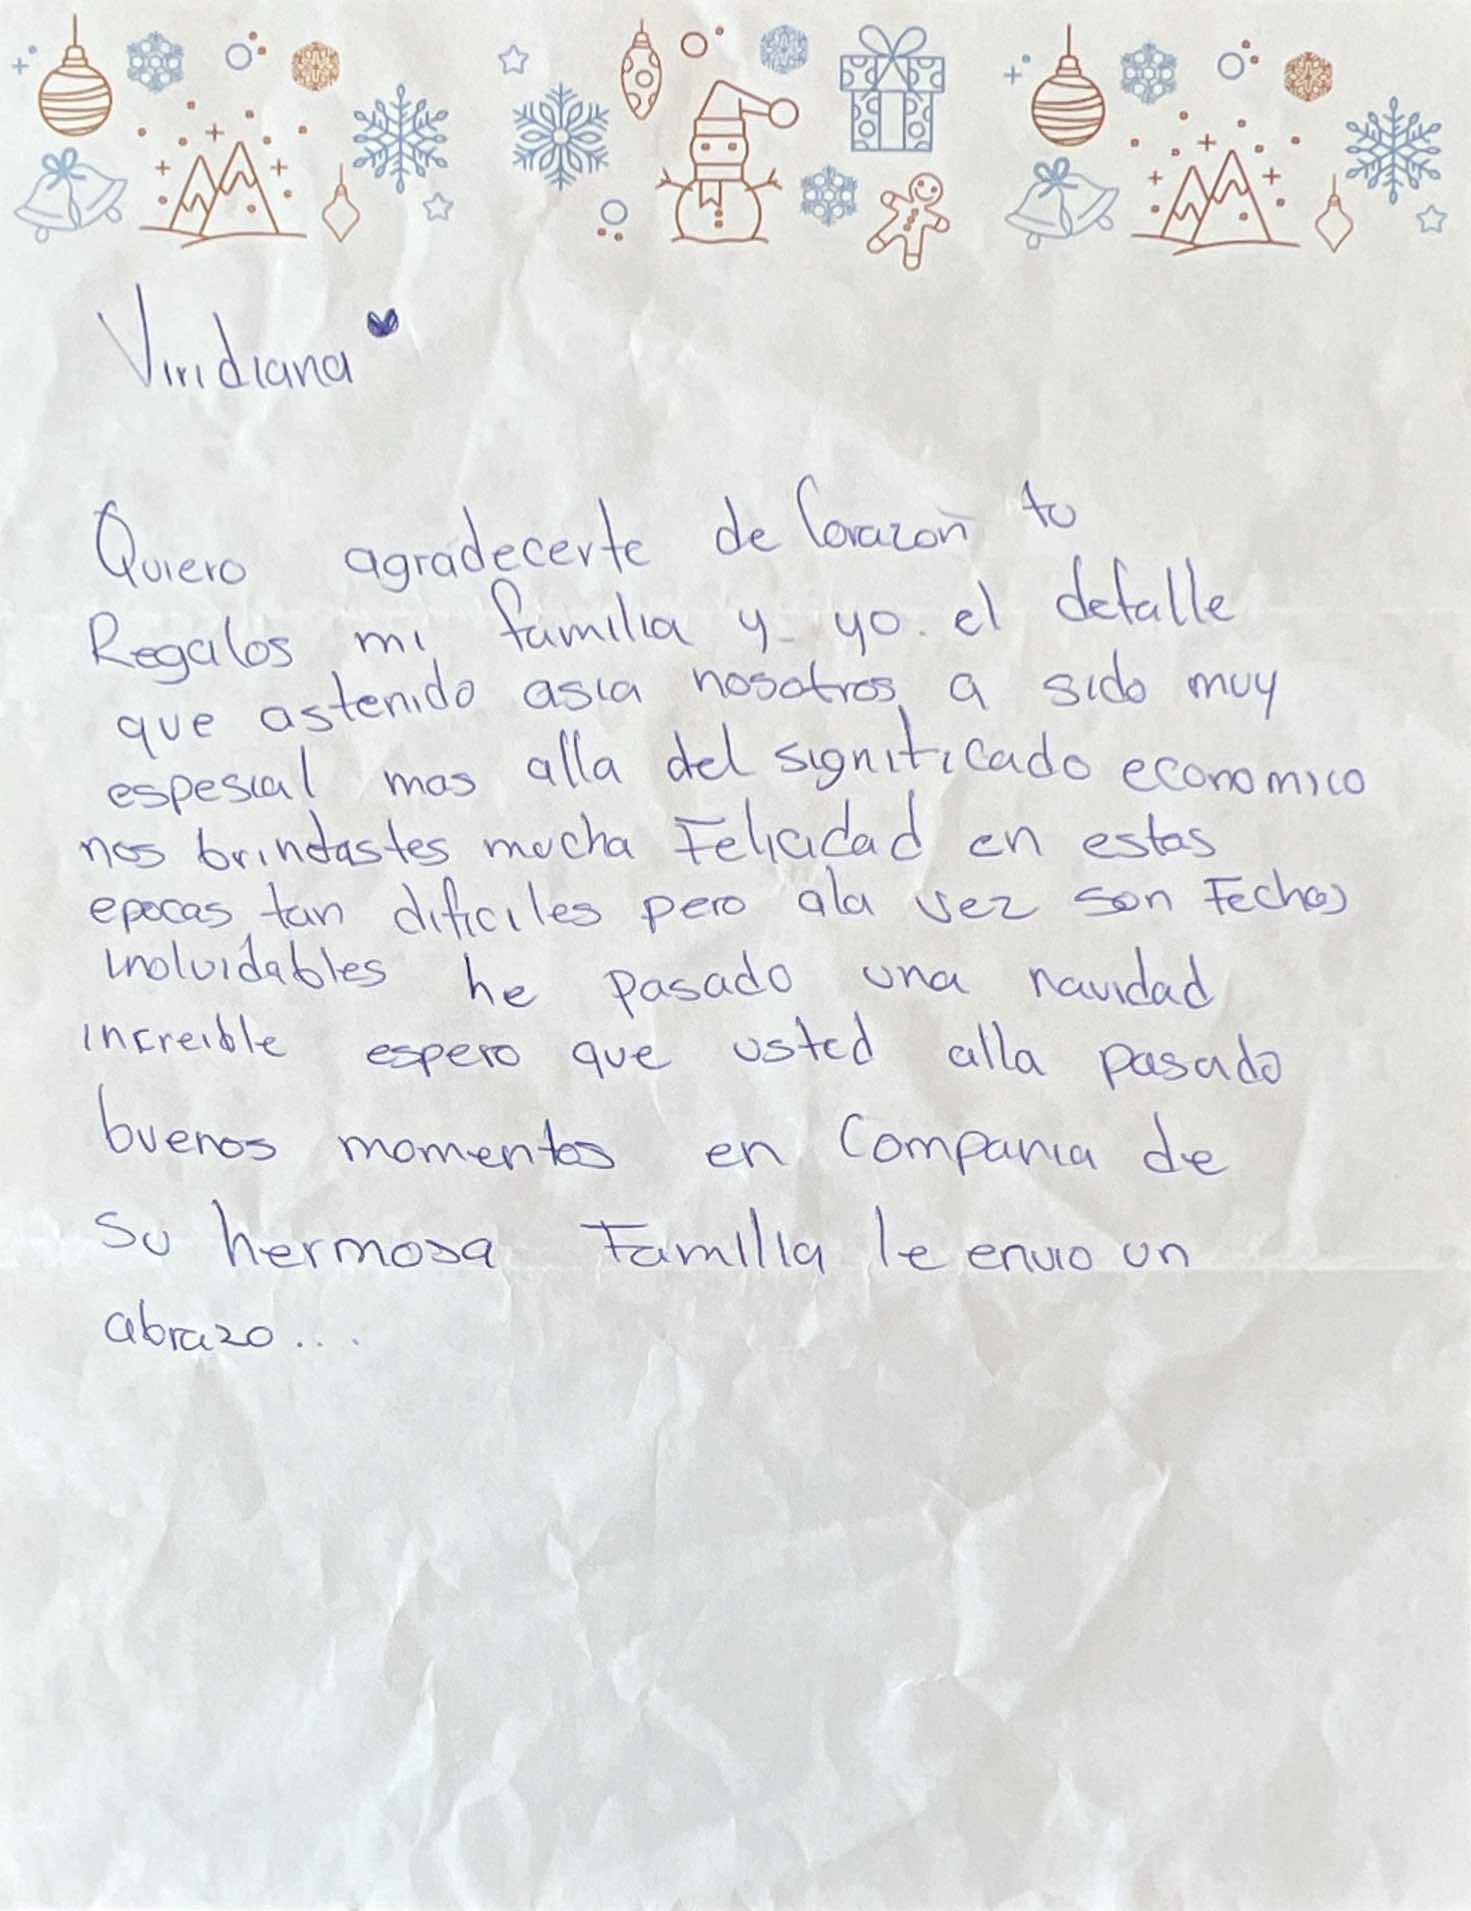 Viridiana
Quiero agradecerte de Corazon tu
Regalos mi familia y yo. el detalle
que astenido asia nosotros, a sido muy
espesial mas alla del significado economico
nos brindastes mucha Felicidad en estas
epocas tan dificiles pero ala vez son Fechas
inolvidables he pasado una navidad
increible espero que usted alla pasado
buenos momentos en Compania de
Su hermosa Familia le envio un
abrazo...